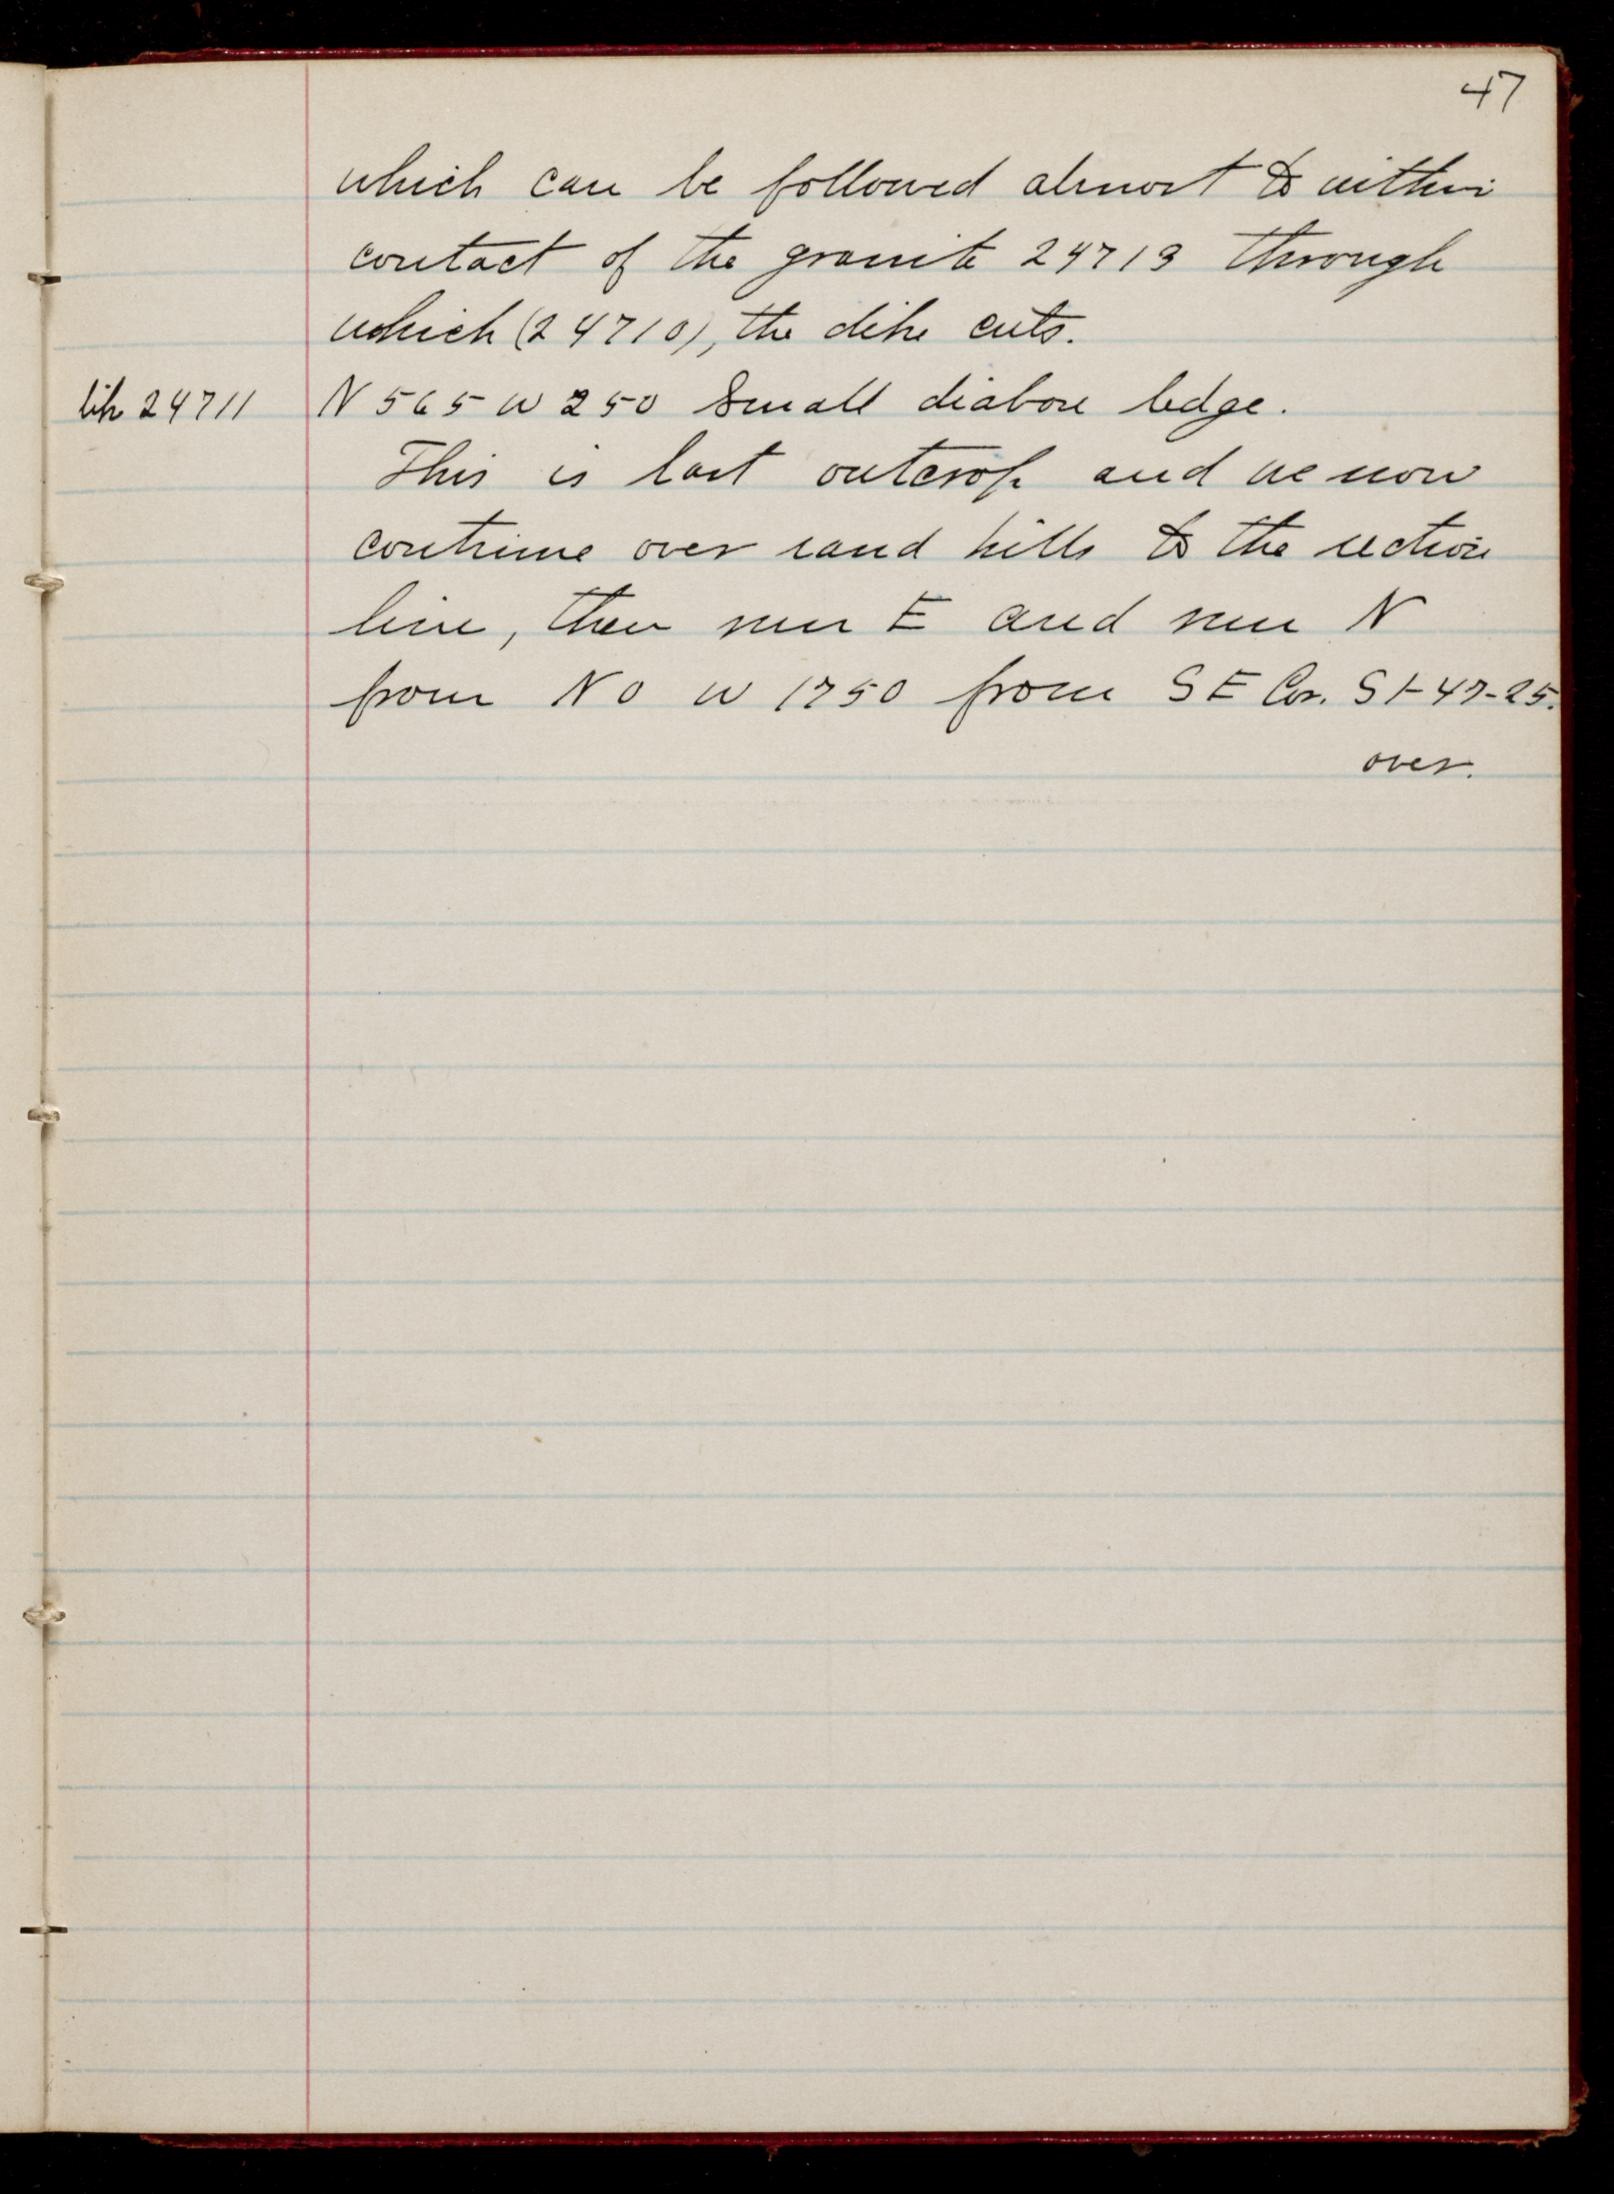 47
which can be followed almost to within
contact of the granite 24713 through
which (24710), the dike cuts.
24711 N 565 W 250 Small diabase ledge.
This is last outcrop and we now
continue over sand hills to the section
line, then run E and run N
from N 0 W 1750 from S E Cor. S 1-47-25.
over.